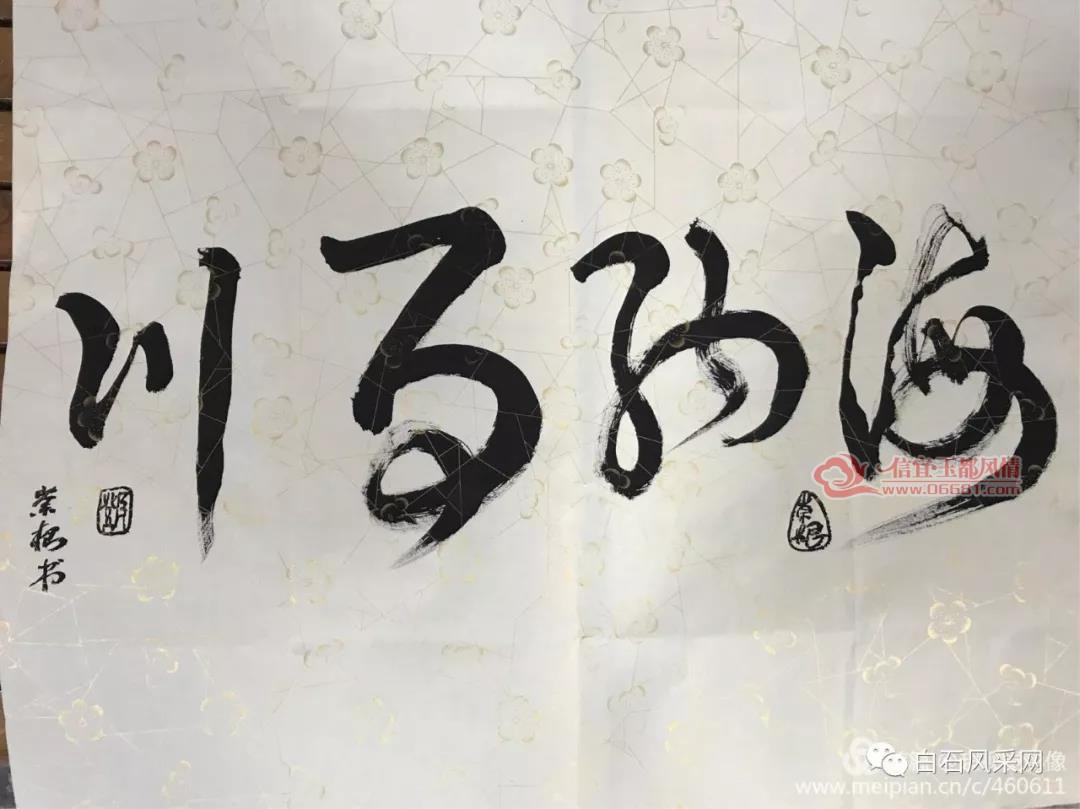 海纳百川
崇根书
崇根
信宜玉都风情
www.06681.com
白石风采网
www.meipian.cn/c/460611